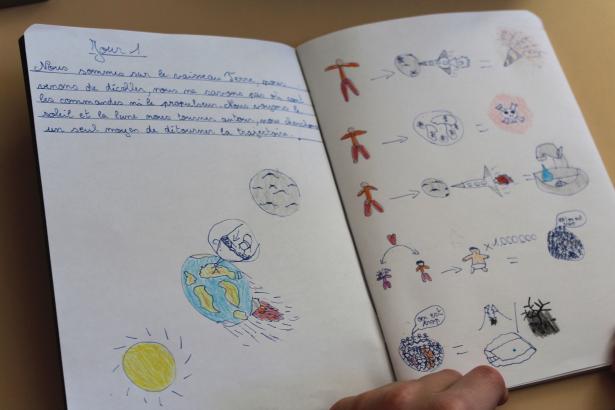 Jour 1
Nous sommes sur le vaisseau Terre, nous
venons de décoller, nous ne savons pas où sont
les commandes ni le propulseur. Nous voyons le
soleil et la lune nous tourner autour, nous cherchons
un seul moyen de détourner la trajectoire.
x1.000000
on est
trop